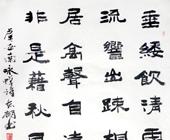 垂緌飲清
流響出疎
居高聲自
非是藉秋
世南咏蟬詩